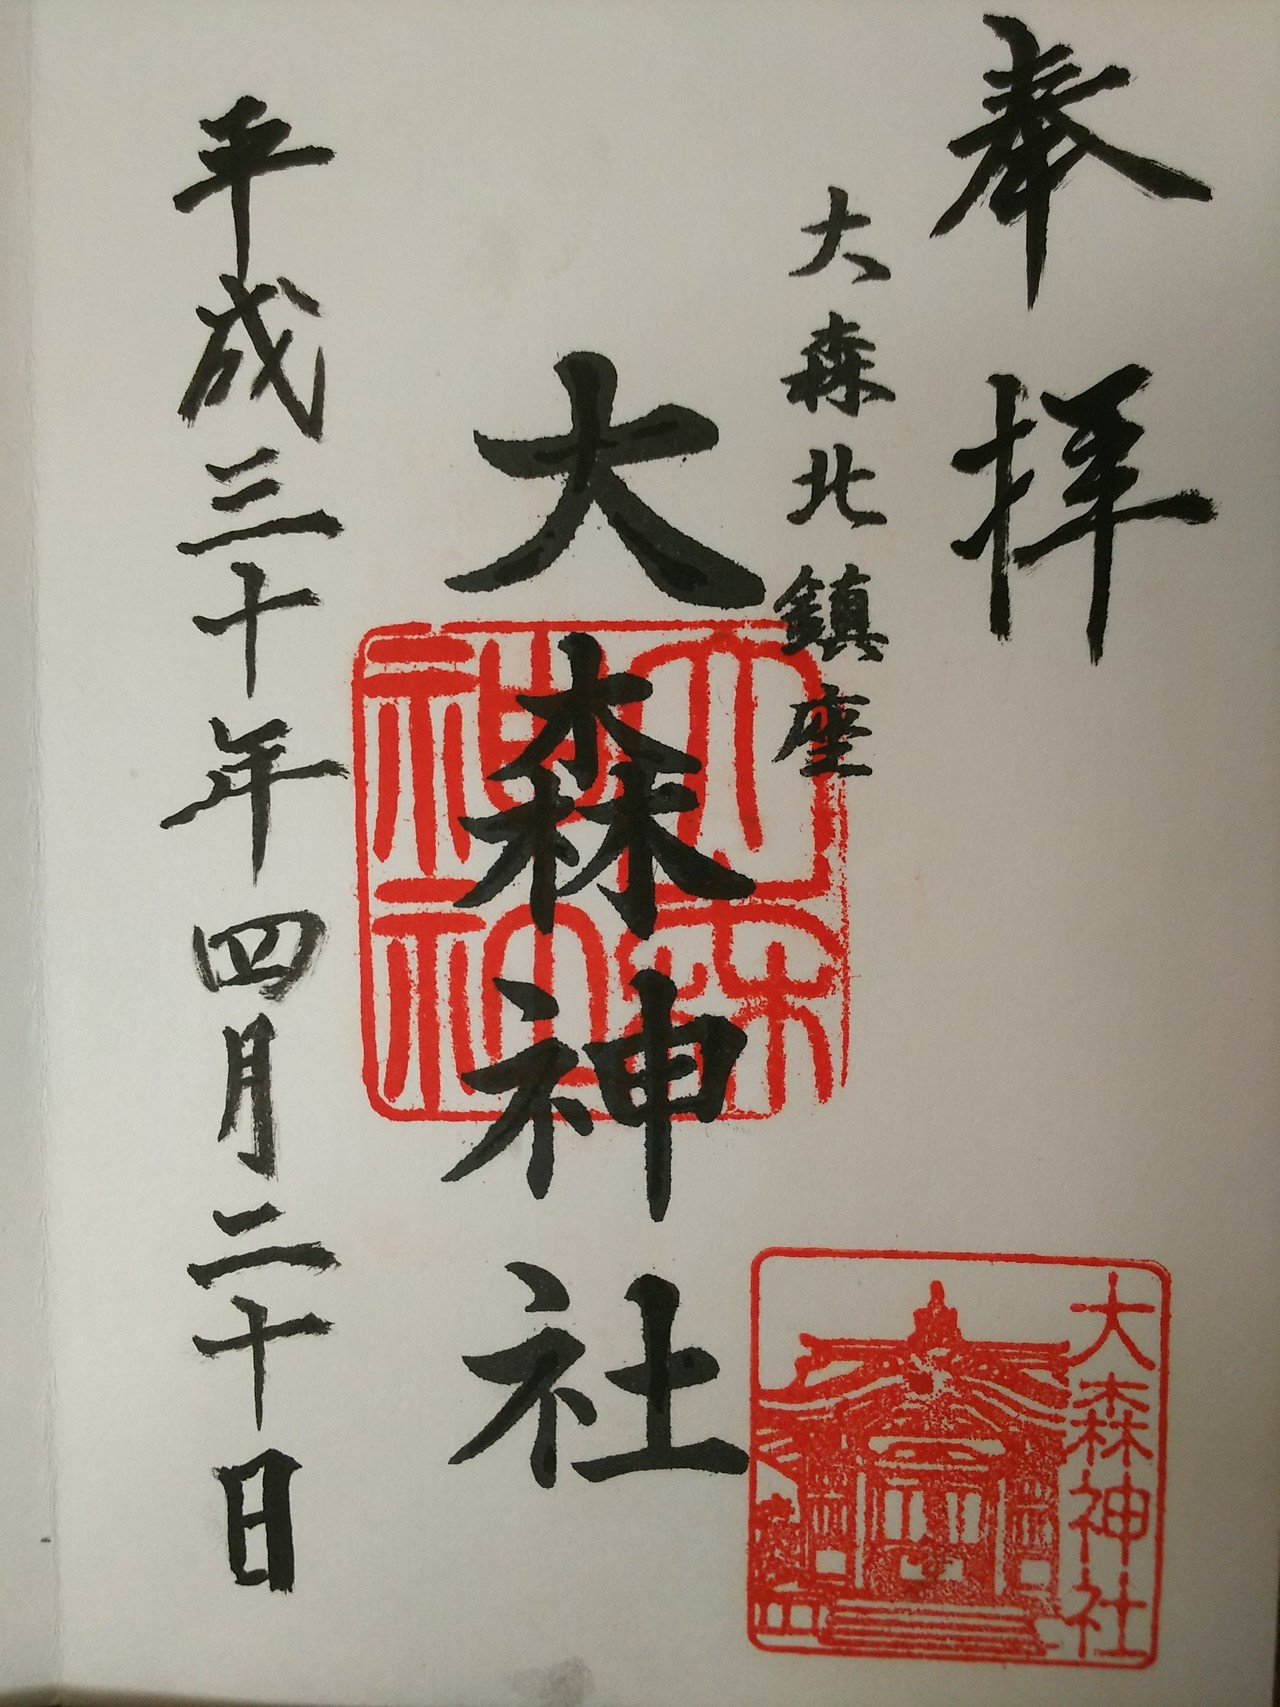 奉拝
大森北鎮座
大森神社
大森神社
平成三十年四月二十日
大森神社